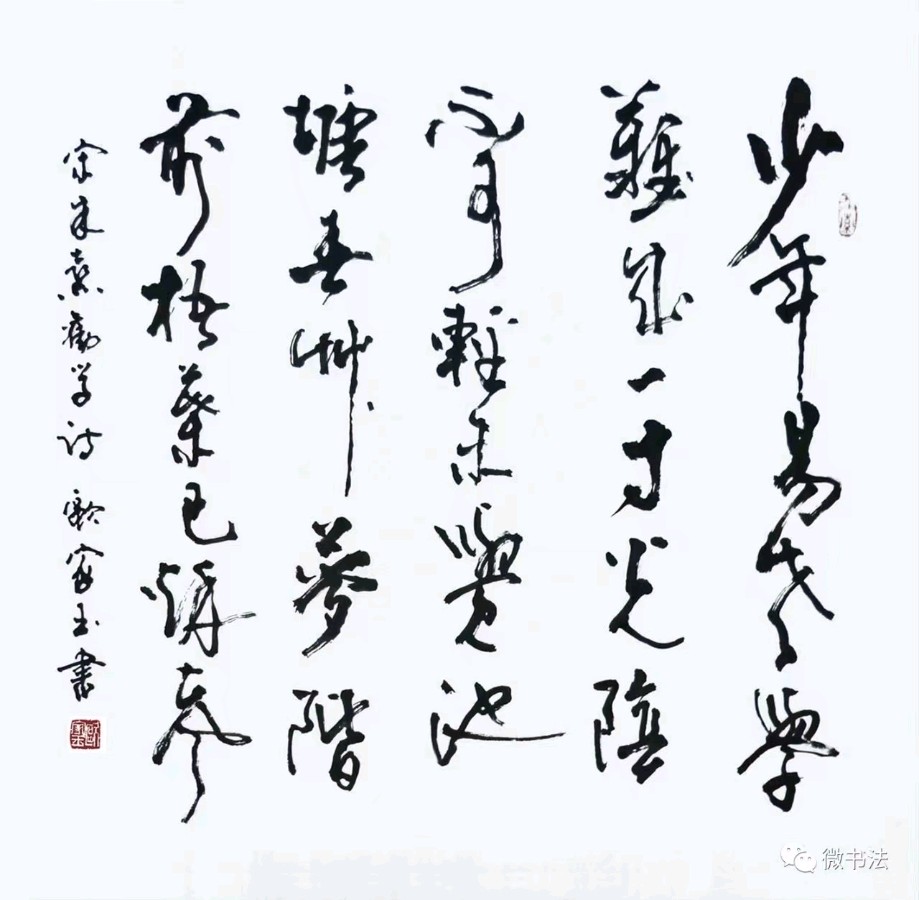 少年易老學
難成一寸光陰
不可輕未覺池
塘春艸夢階
前梧葉已秋聲
宋朱熹勸学诗 玉書
微书法